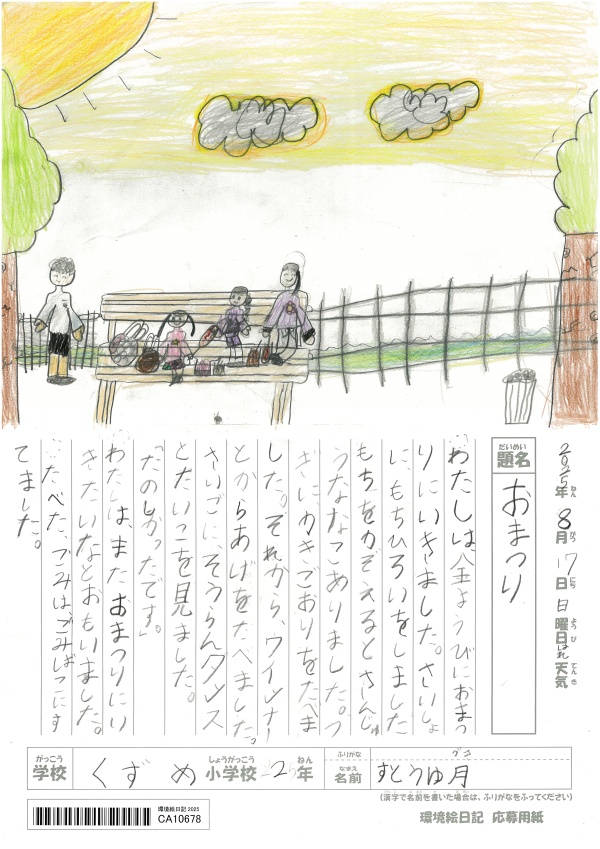 2025年ねん 8月がつ 17日にち 日曜日ようび はれ天気てんき
だいめい
題名
おまつり
わたしは、金ようびにおまつ
りにいきました。さいしょ
に、もちひろいをしました
もちをかぞえるとさんじゅ
うななこありました。つ
ぎに、かきごおりをたべま
した。それから、ウインナー
とからあげをたべました。
さいごに、そうらんダンス
とたいこを見ました。
「たのしかったです。」
わたしは、またおまつりにい
きたいなとおもいました。
たべた、ごみは、ごみばこにす
てました。
がっこう しょうがっこう ねん ふりがな
学校 くずめ 小学校 2年 なまえ 名前 すとうゆ月
(漢字で名前を書いた場合は、ふりがなをふってください)
環境絵日記 2025
CA10678
環境絵日記 応募用紙